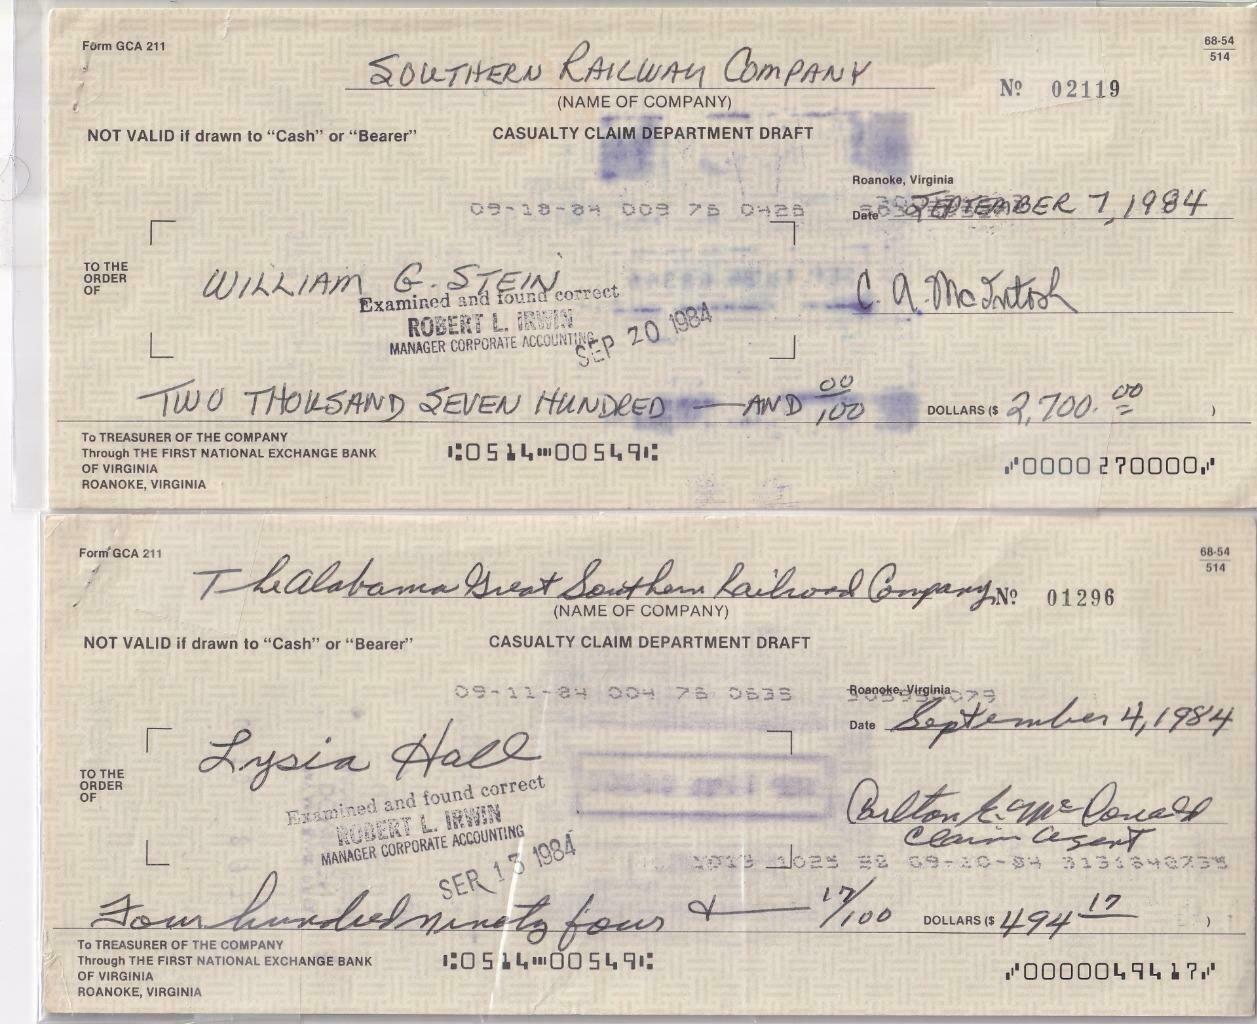 Form GCA 211
68-54
514
SOUTHERN RAILWAY COMPANY
Nº 02119
(NAME OF COMPANY)
NOT VALID if drawn to “Cash” or “Bearer”
CASUALTY CLAIM DEPARTMENT DRAFT
Roanoke, Virginia
09-18-84 009 76 0426
Date SEPTEMBER 7, 1984
TO THE
ORDER
OF
WILLIAM G. STEIN
C. A. McIntosh
Examined and found correct
ROBERT L. IRWIN
MANAGER CORPORATE ACCOUNTING
SEP 20 1984
TWO THOUSAND SEVEN HUNDRED — AND 00/100
DOLLARS ($ 2,700.00 )
To TREASURER OF THE COMPANY
Through THE FIRST NATIONAL EXCHANGE BANK
OF VIRGINIA
ROANOKE, VIRGINIA
⑆0514⑉00549⑆
⑈0000270000⑈
Form GCA 211
68-54
514
The Alabama Great Southern Railroad Company
Nº 01296
(NAME OF COMPANY)
NOT VALID if drawn to “Cash” or “Bearer”
CASUALTY CLAIM DEPARTMENT DRAFT
09-11-84 004 76 0635
Roanoke, Virginia
Date September 4, 1984
TO THE
ORDER
OF
Lysia Hall
Examined and found correct
ROBERT L. IRWIN
MANAGER CORPORATE ACCOUNTING
SEP 13 1984
Carlton E. McDonald
Claim Agent
09-10-84
Four hundred ninety four & — 17/100
DOLLARS ($ 494 17 )
To TREASURER OF THE COMPANY
Through THE FIRST NATIONAL EXCHANGE BANK
OF VIRGINIA
ROANOKE, VIRGINIA
⑆0514⑉00549⑆
⑈0000049417⑈